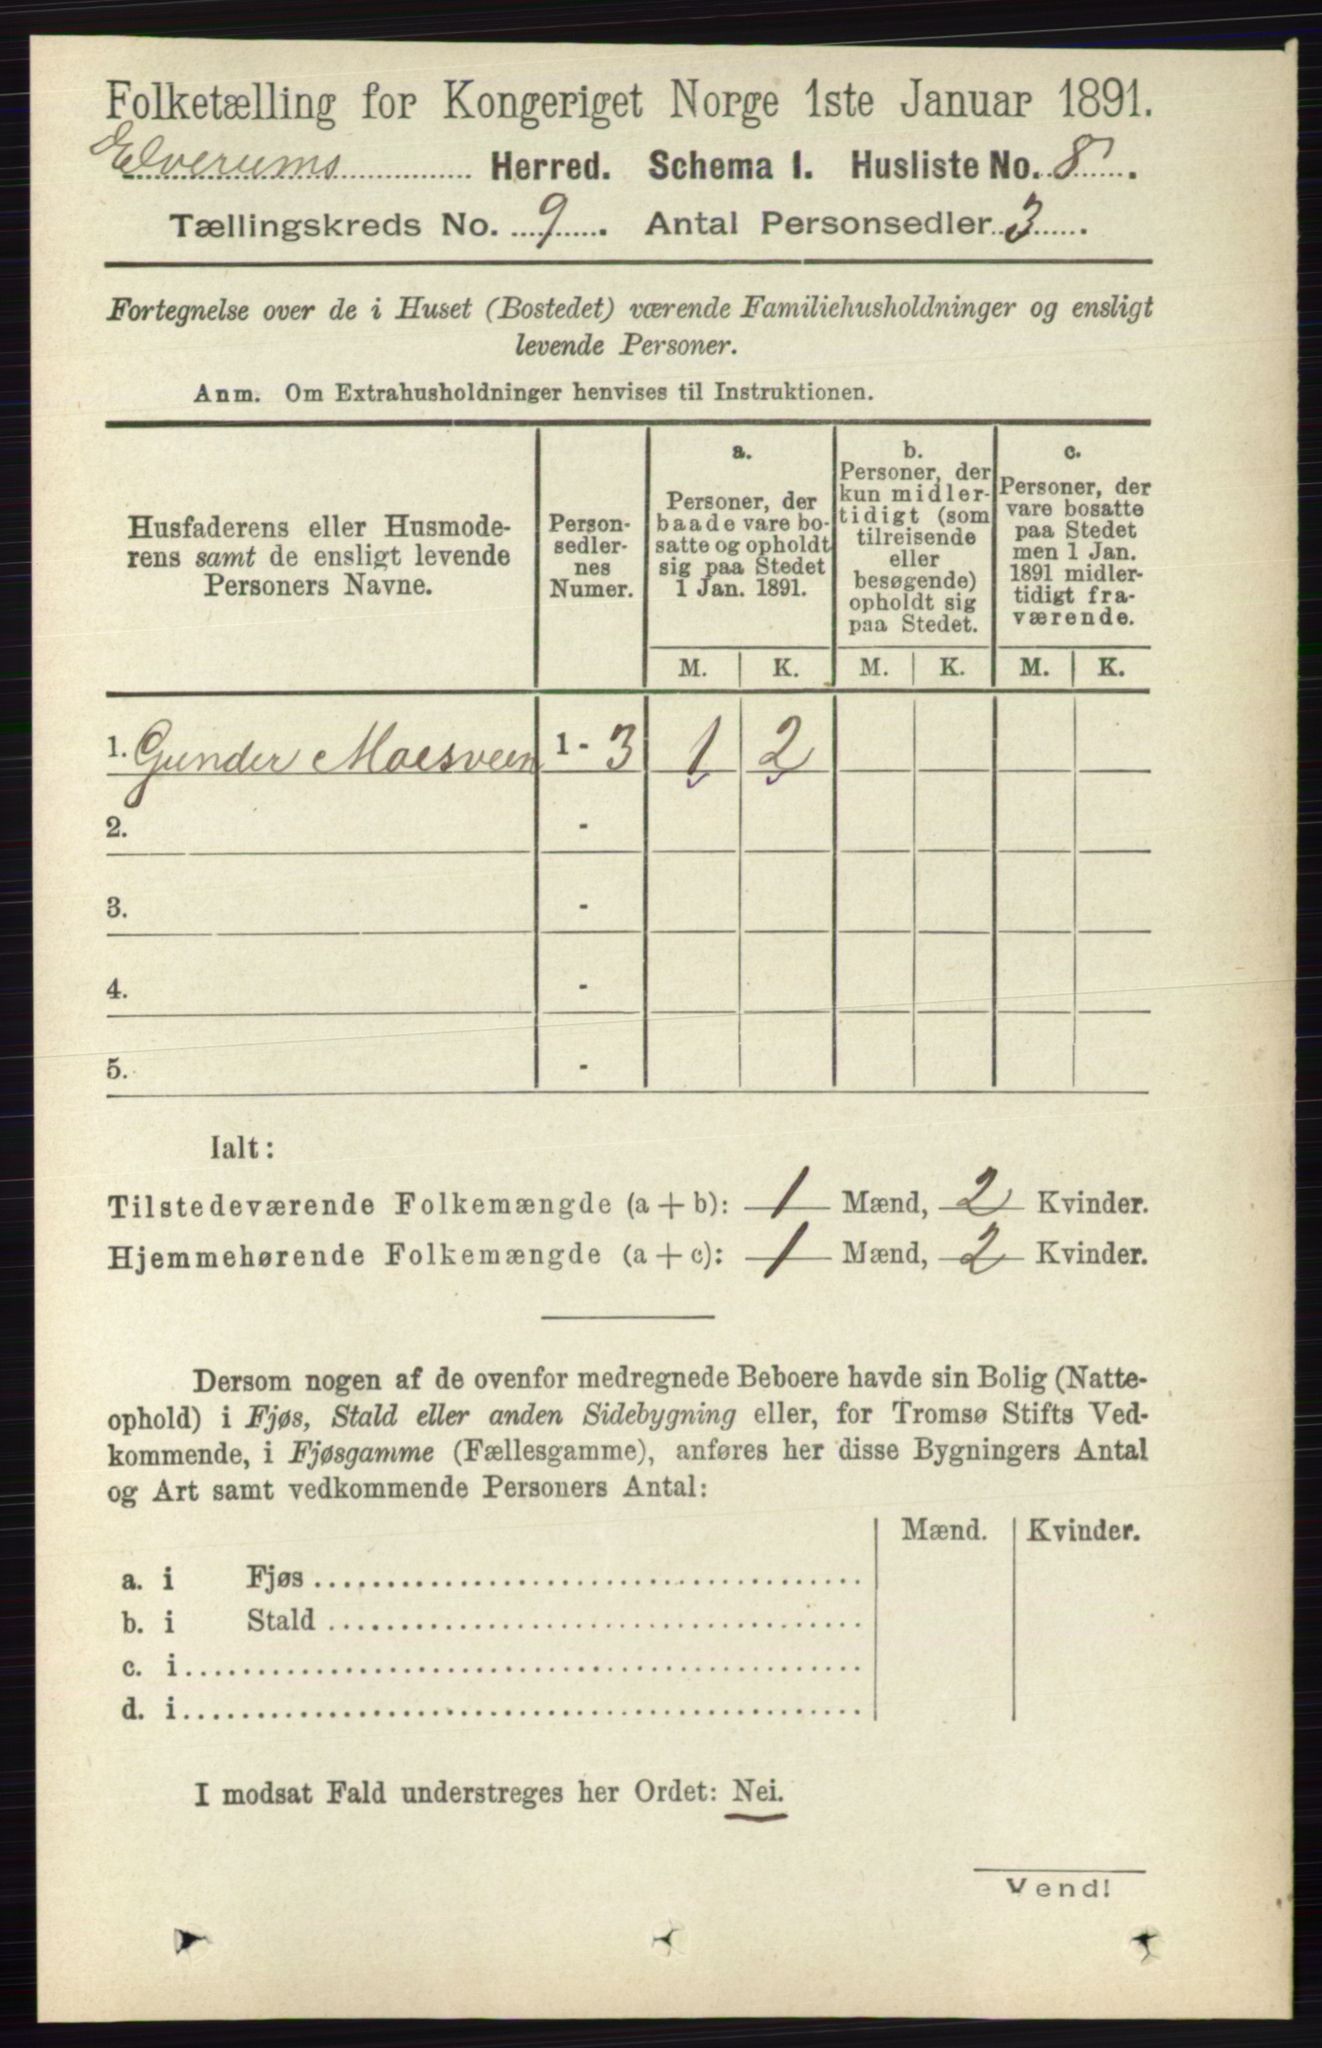 Folketælling for Kongeriget Norge 1ste Januar 1891.
Elverums Herred. Schema I. Husliste No. 8.
Tællingskreds No. 9. Antal Personsedler 3.
Fortegnelse over de i Huset (Bostedet) værende Familiehusholdninger og ensligt
levende Personer.
Anm. Om Extrahusholdninger henvises til Instruktionen.
Husfaderens eller Husmode-
rens samt de ensligt levende
Personers Navne.
Person-
sedler-
nes
Numer.
a.
Personer, der
baade vare bo-
satte og opholdt
sig paa Stedet
1 Jan. 1891.
b.
Personer, der
kun midler-
tidigt (som
tilreisende
eller
besøgende)
opholdt sig
paa Stedet.
c.
Personer, der
vare bosatte
paa Stedet
men 1 Jan.
1891 midler-
tidigt fra-
værende.
M. K. M. K. M. K.
1. Gunder Moesveen 1 - 3 1 2
2. -
3. -
4. -
5. -
Ialt:
Tilstedeværende Folkemængde (a + b): 1 Mænd, 2 Kvinder.
Hjemmehørende Folkemængde (a + c): 1 Mænd, 2 Kvinder.
Dersom nogen af de ovenfor medregnede Beboere havde sin Bolig (Natte-
ophold) i Fjøs, Stald eller anden Sidebygning eller, for Tromsø Stifts Ved-
kommende, i Fjøsgamme (Fællesgamme), anføres her disse Bygningers Antal
og Art samt vedkommende Personers Antal:
Mænd. Kvinder.
a. i Fjøs
b. i Stald
c. i
d. i
I modsat Fald understreges her Ordet: Nei.
Vend!